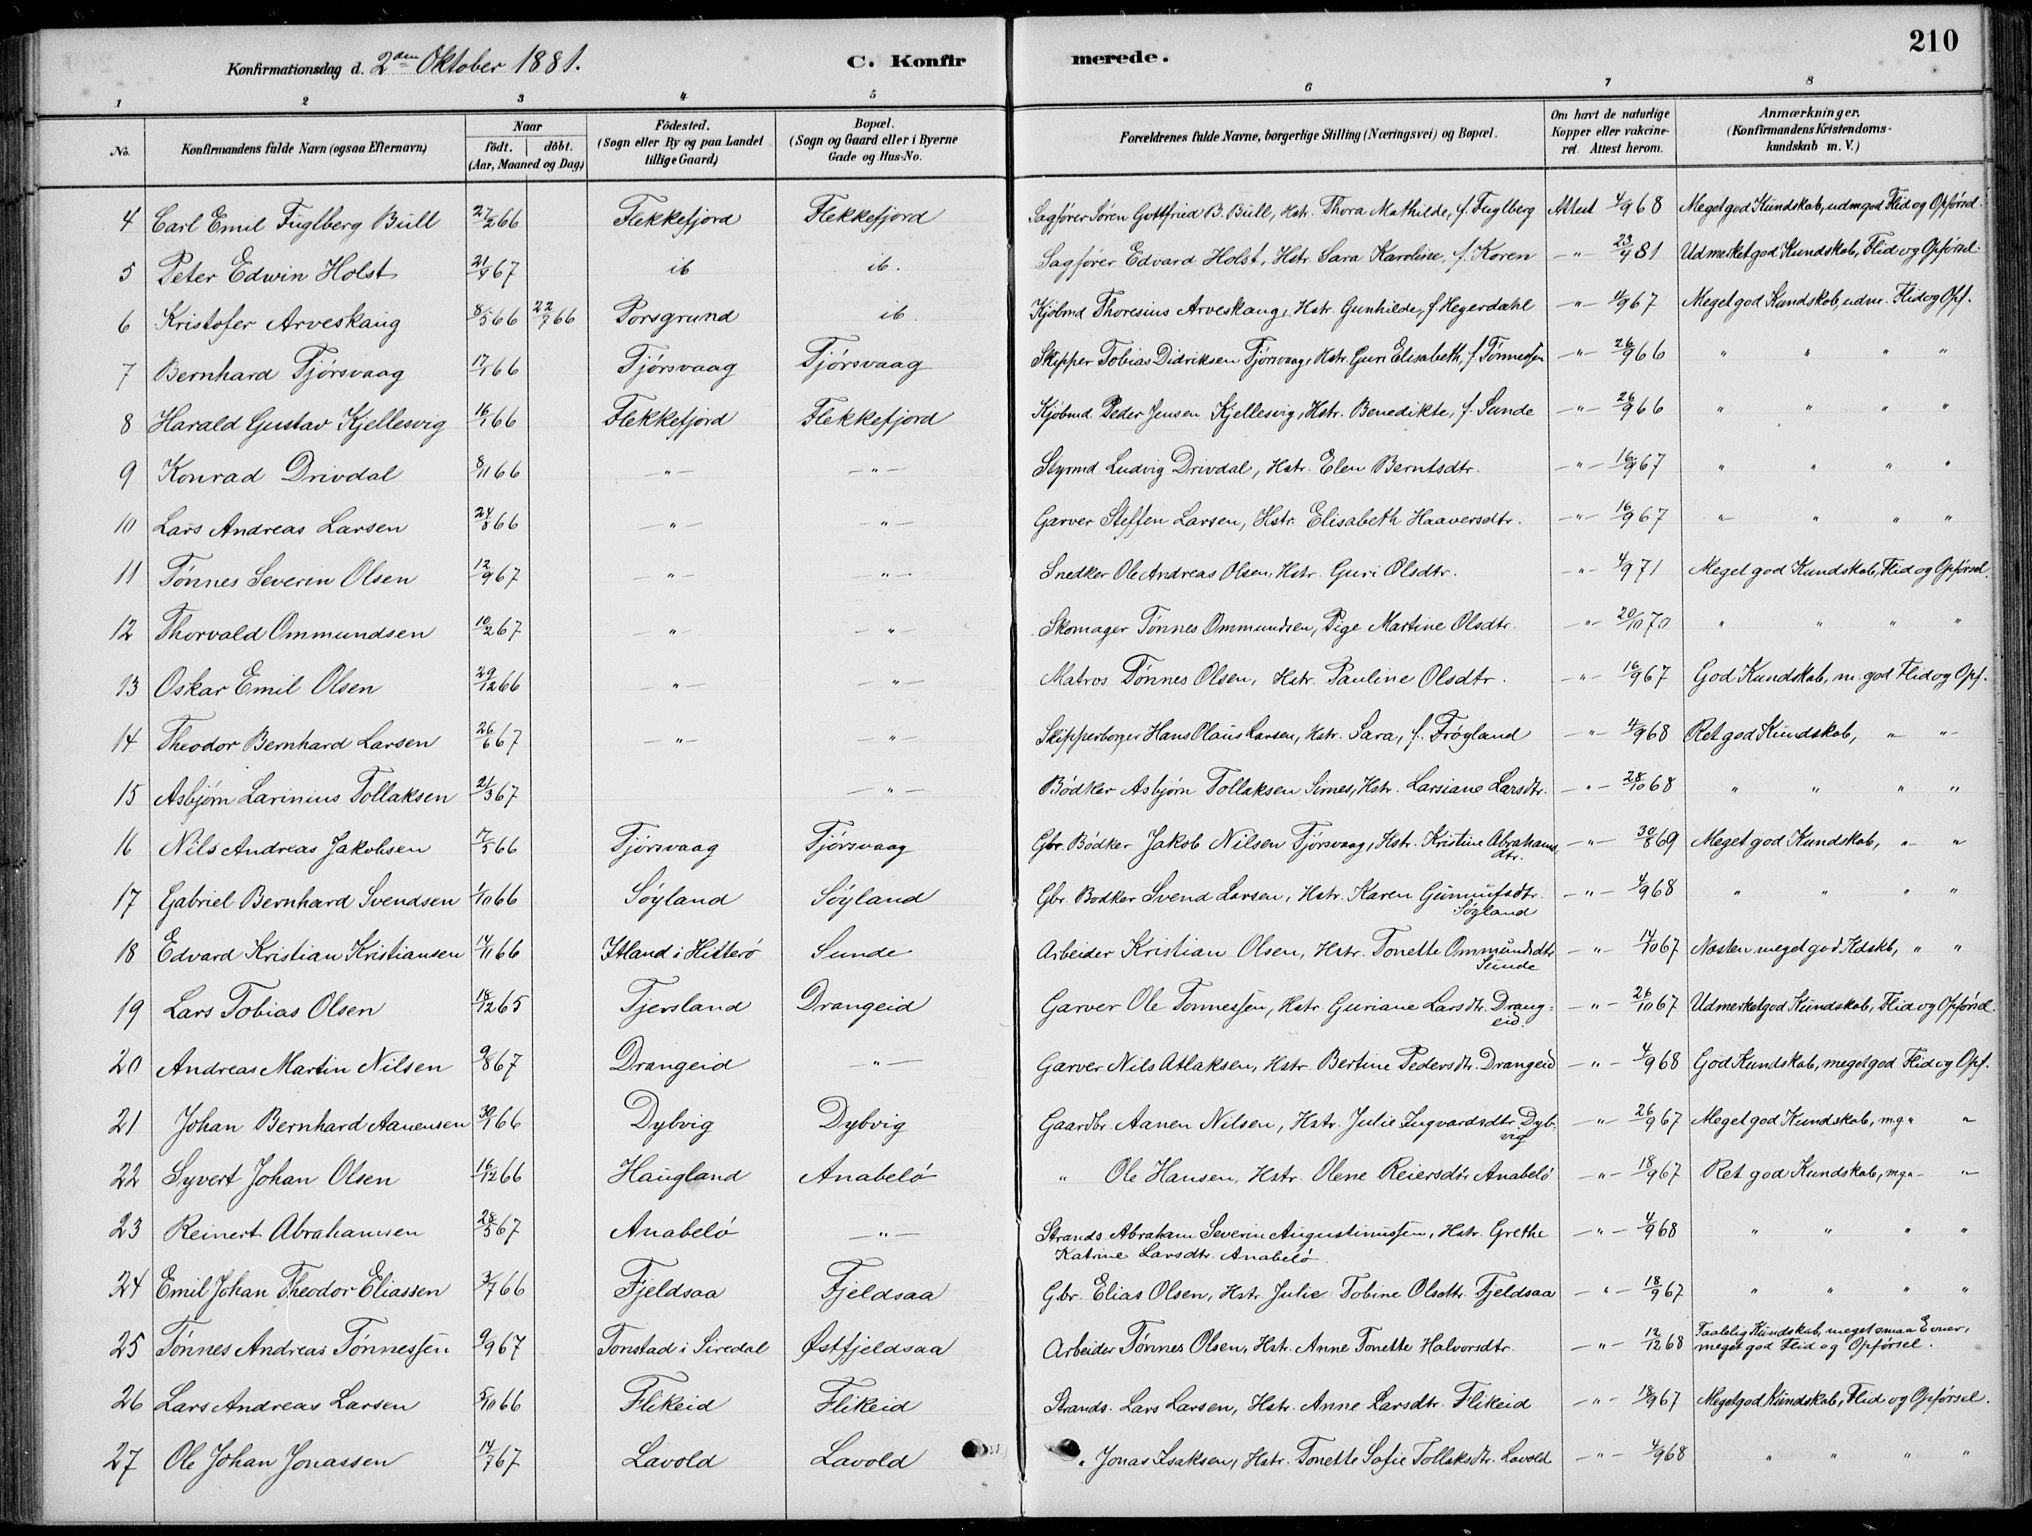 210
Konfirmationsdag d. 2den Oktober 1881. C. Konfirmerede.
1 2 3 4 5 6 7 8
No. Konfirmandens fulde Navn (ogsaa Efternavn) Naar født. døbt. (Aar, Maaned og Dag) Fødested. (Sogn eller By og paa Landet tillige Gaard) Bopæl. (Sogn og Gaard eller i Byerne Gade og Hus-No. Forældrenes fulde Navne, borgerlige Stilling (Næringsvei) og Bopæl. Om havt de naturlige Kopper eller vakcineret. Attest herom. Anmærkninger. (Konfirmandens Kristendomskundskab m. V.)
4 Carl Emil Fuglberg Bull 27/2 66 Flekkefjord Flekkefjord Sagfører Søren Gottfried B. Bull, Hstr. Thora Mathilde, f. Fuglberg Attest 4/9 68 Meget god Kundskab, udm god Flid og Opførsel
5 Peter Edwin Holst 21/4 67 ib ib. Sagfører Edvard Holst, Hstr. Sara Karoline, f. Koren —"— 23/4 81 Udmerket god Kundskab, Flid og Opførsel.
6 Kristofer Arveskaug 8/5 66 22/7 66 Porsgrund ib. Kjøbmd Thoresius Arveskaug, Hstr. Gunhilde, f. Hegerdahl —"— 4/9 67 Meget god Kundskab, udm. Flid og Opf.
7 Bernhard Fjørsvaag 17/1 66 Fjørsvaag Fjørsvaag Skipper Tobias Didriksen Fjørsvaag, Hstr. Guri Elisabeth, f. Tønnessen —"— 26/9 66 " " " "
8 Harald Gustav Kjellesvig 16/1 66 Flekkefjord Flekkefjord Kjøbmd. Peder Jensen Kjellesvig, Hstr. Benedikte, f. Sunde —"— 26/9 66 " " " "
9 Konrad Drivdal 8/11 66 —"— —"— Styrmd Ludvig Drivdal, Hstr. Elen Berntsdtr. —"— 16/9 67 " " " "
10 Lars Andreas Larsen 24/8 66 —"— "— Garver Steffen Larsen, Hstr. Elisabeth Haaversdtr. —"— 16/9 67 " " " "
11 Tønnes Severin Olsen 12/9 67 —"— "— Snedker Ole Andreas Olsen, Hstr. Guri Olsdtr. —"— 4/9 71 Meget god Kundskab, Flid og Opførsel.
12 Thorvald Ommundsen 10/2 67 —"— —"— Skomager Tønnes Ommundsen, Pige Martine Olsdtr. —"— 20/10 70 " " " "
13 Oskar Emil Olsen 29/12 66 —"— —"— Matros Tønnes Olsen, Hstr. Pauline Olsdtr. —"— 16/9 67 God Kundskab, m. god Flid og Opf.
14 Theodor Bernhard Larsen 26/6 67 —"— —"— Skipperborger Hans Olaus Larsen, Hstr. Sara, f. Frøyland —"— 4/9 68 Ret god Kundskab, " "
15 Asbjørn Larinius Tollaksen 21/3 67 —"— Bødker Asbjørn Tollaksen Sirnes, Hstr. Larsiane Larsdtr. —"— 28/10 68 " " " "
16 Nils Andreas Jakobsen 17/5 66 Fjørsvaag Fjørsvaag Gbr. Bødker Jakob Nilsen Fjørsvaag, Hstr. Kristine Abrahamsdtr. —"— 30/8 69 Meget god Kundskab, " "
17 Gabriel Bernhard Svendsen 1/10 66 Søyland Søyland Gbr. Bødker Svend Larsen, Hstr. Karen Gunnufsdtr. Søyland —"— 4/9 68 " " " "
18 Edvard Kristian Kristiansen 14/11 66 Itland i Hitterø Sunde Arbeider Kristian Olsen, Hstr. Tonette Ommundsdtr Sunde —"— 14/10 67 Næsten meget god Kdskb, " "
19 Lars Tobias Olsen 18/12 65 Fjersland Drangeid Garver Ole Tønnessen, Hstr. Guriane Larsdtr. Drangeid. —"— 26/10 67 Udmerket god Kundskab, Flid og Opførsel.
20 Andreas Martin Nilsen 9/8 67 Drangeid —"— Garver Nils Atlaksen, Hstr. Bertine Pedersdtr. Drangeid —"— 4/9 68 God Kundskab, meget god Flid og Opf.
21 Johan Bernhard Aanensen 30/1 66 Dybvig Dybvig Gaardbr. Aanen Nilsen, Hstr. Julie Ingvardsdtr. Dybvig —"— 26/9 67 Meget god Kundskab, m.g. " "
22 Syvert Johan Olsen 16/12 66 Haugland Anabelø " Ole Hansen, Hstr. Olene Reiersdtr Anabelø —"— 18/9 67 Ret god Kundskab, m.g. " "
23 Reinert Abrahamsen 28/5 67 Anabelø —"— Strands. Abraham Severin Augustinussen, Hstr. Grethe
Katrine Larsdtr. Anabelø. —"— 4/9 68 " " " "
24 Emil Johan Theodor Eliassen 3/7 66 Fjeldsaa Fjeldsaa Gbr. Elias Olsen, Hstr. Julie Tobine Olsdtr. Fjeldsaa —"— 18/9 67 " " " "
25 Tønnes Andreas Tønnessen 9/9 67 Tonstad i Siredal Østfjeldsaa Arbeider Tønnes Olsen, Hstr. Anne Tonette Halvorsdtr. —"— 12/12 68 Taalelig Kundskab, meget smaa Evner, meget god Flid og Opførsel.
26 Lars Andreas Larsen 5/10 66 Flikeid Flikeid Strands. Lars Larsen, Hstr. Anne Larsdtr. Flikeid —"— 18/9 67 Meget god Kundskab, Flid og Opførsel.
27 Ole Johan Jonassen 14/7 67 Lavold Lavold " Jonas Isaksen, Hstr. Tonette Sofie Tollaksdtr. Lavold —"— 4/9 68 " " " "